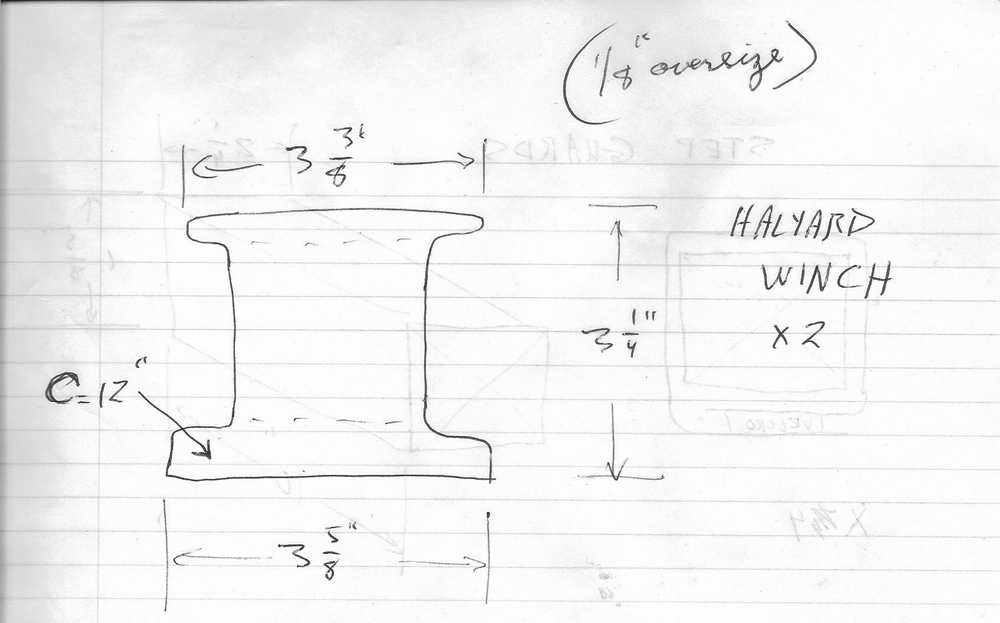 (1/8" oversize)
3 3/8"
HALYARD
WINCH
X 2
3 1/4"
C=12"
3 5/8"
STEP GUARDS
VELCRO